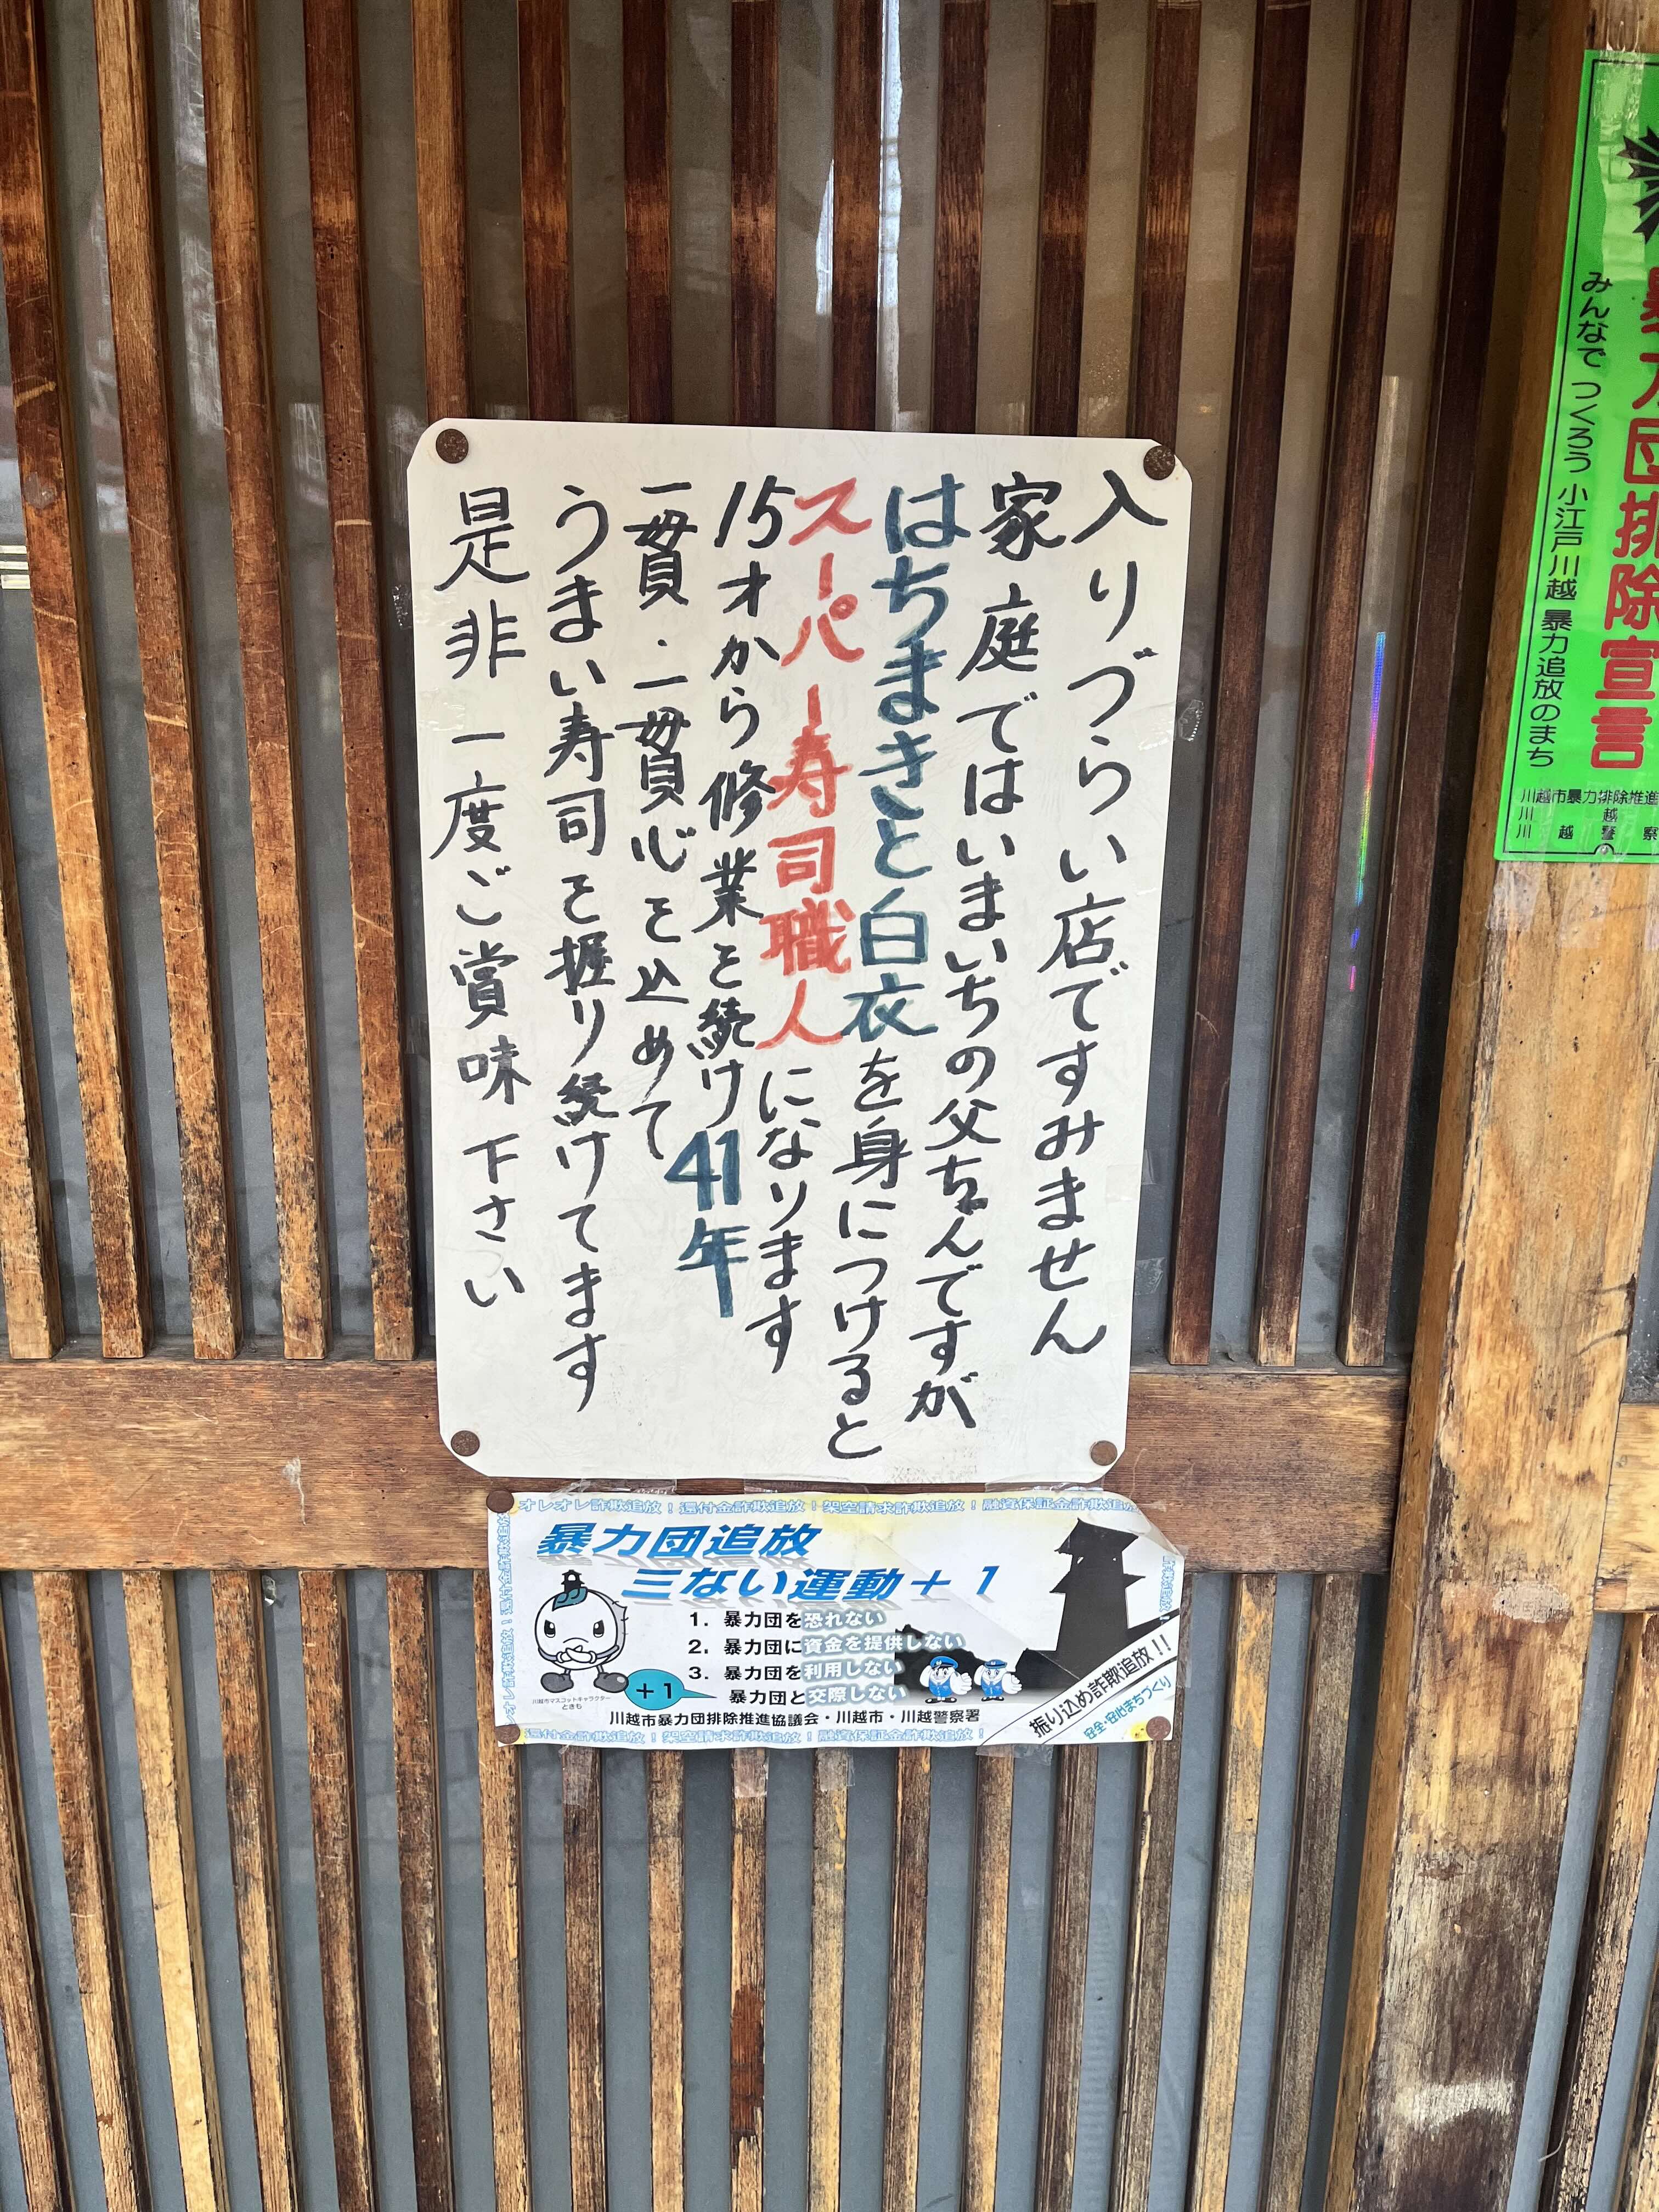 入りづらい店ですみません
家庭ではいまいちの父ちゃんですが
はちまきと白衣を身につけると
スーパー寿司職人になります
15才から修業を続け41年
一貫・二貫心を込めて
うまい寿司を握り続けてます
是非一度ご賞味下さい
オレオレ詐欺追放！還付金詐欺追放！架空請求詐欺追放！融資保証金詐欺追放
暴力団追放
三ない運動＋１
1. 暴力団を恐れない
2. 暴力団に資金を提供しない
3. 暴力団を利用しない
＋１ 暴力団と交際しない
川越市マスコットキャラクター
ときも
川越市暴力団排除推進協議会・川越市・川越警察署
振り込め詐欺追放！！
安全・安心まちづくり
還付金詐欺追放！架空請求詐欺追放！融資保証金詐欺追放！
暴力団排除宣言
みんなで つくろう 小江戸川越 暴力追放のまち
川越市暴力排除推進
川 越
川 越 警 察